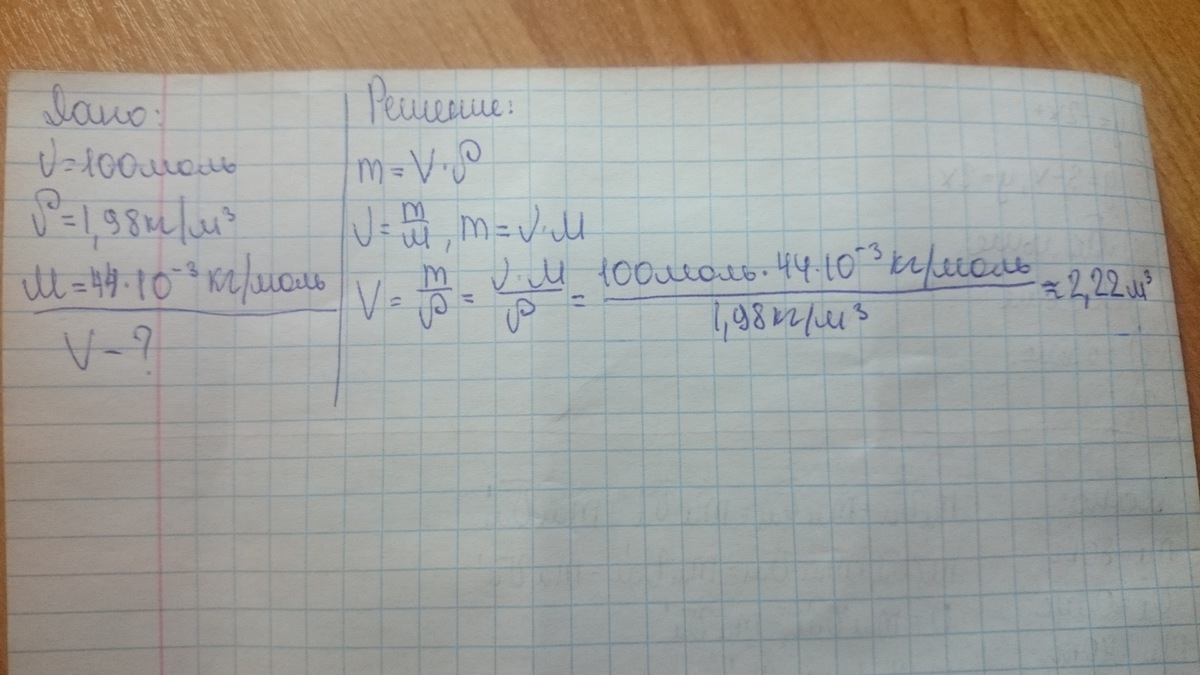 Дано:
ν=100моль
ρ=1,98кг/м³
M=44·10⁻³кг/моль
V-?
Решение:
m=V·ρ
ν=m/M, m=ν·M
V=m/ρ=ν·M/ρ=100моль·44·10⁻³кг/моль/1,98кг/м³≈2,22м³